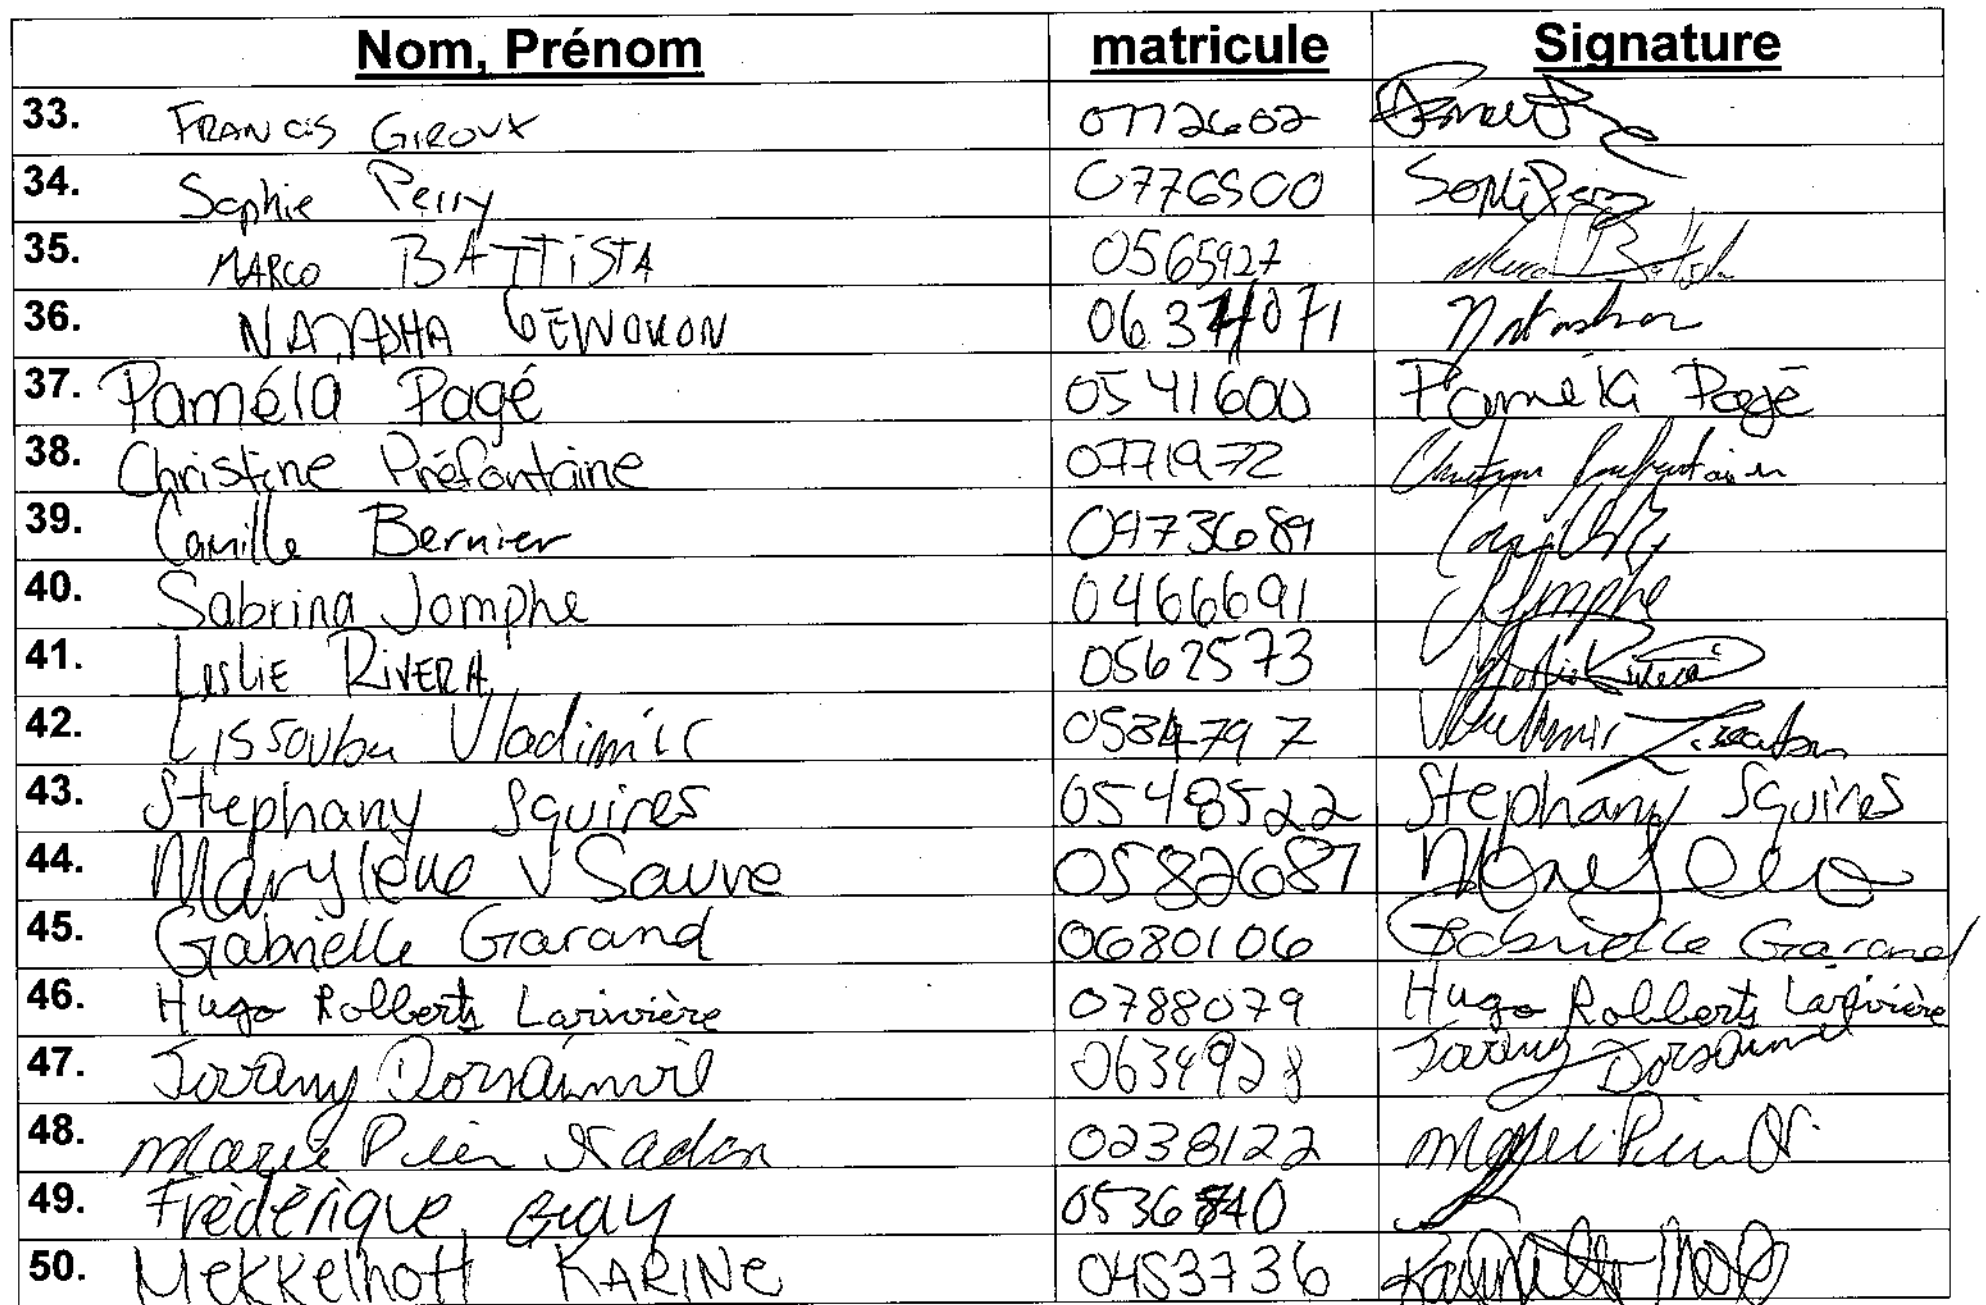 Nom, Prénom matricule Signature
33. FRANCIS GIROUX 0772602
34. Sophie Perry 0776500 Sophie Perry
35. MARCO BATTISTA 0565927 Marco Battista
36. NATASHA 0637071 Natasha
37. Paméla Pagé 0541600 Paméla Pagé
38. Christine Préfontaine 0771972 Christine Préfontaine
39. Camille Bernier 0973689 Camille B
40. Sabrina Jomphe 0466691 SJomphe
41. LESLIE RIVERA 0562573 Leslie Rivera
42. Lissouba Vladimir 0534797 Vladimir Lissouba
43. Stephany Squires 0548522 Stephany Squires
44. Marylène V Sauve 0582687
45. Gabrielle Garand 0680106 Gabrielle Garand
46. Hugo Robberts Larivière 0788079 Hugo Robberts Larivière
47. Dorsainvil 0634928 Dorsainvil
48. Marie Pier Nadon 0238122 Marie Pier N.
49. Frédérique 0536840
50. Mekkelholt KARINE 0453736